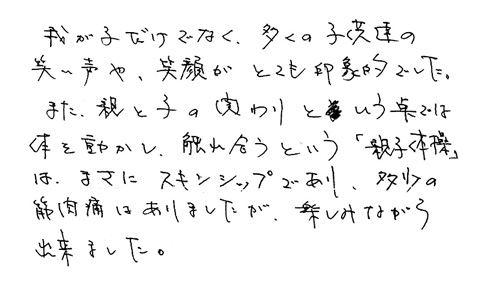 我が子だけでなく、多くの子供達の
笑い声や、笑顔が とても印象的でした。
また、親と子の関わりと いう点では
体を動かし、触れ合うという「親子体操」
は、まさにスキンシップであり、多少の
筋肉痛はありましたが、楽しみながら
出来ました。